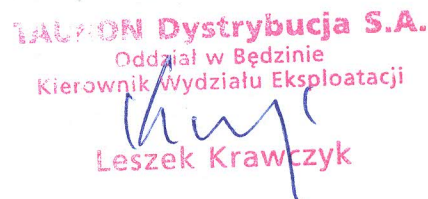 TAURON Dystrybucja S.A.
Oddział w Będzinie
Kierownik Wydziału Eksploatacji
Leszek Krawczyk